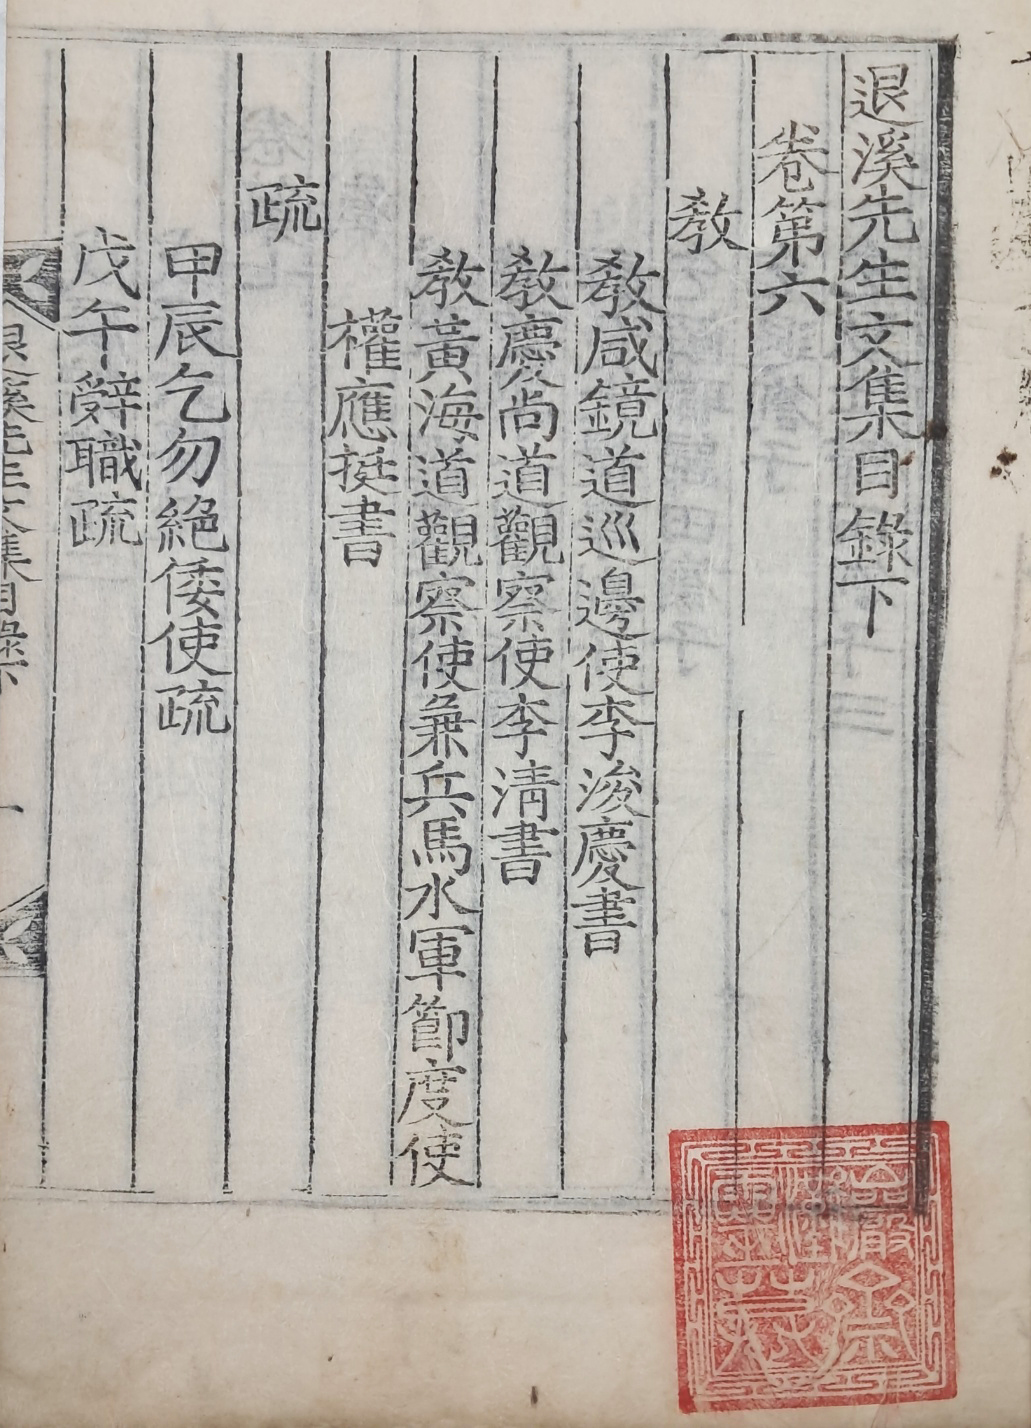 退溪先生文集目錄下
卷第六
敎
敎咸鏡道巡邊使李浚慶書
敎慶尙道觀察使李淸書
敎黃海道觀察使兼兵馬水軍節度使
權應挺書
疏
甲辰乞勿絶倭使疏
戊午辭職疏
退溪先生文集目錄下
一